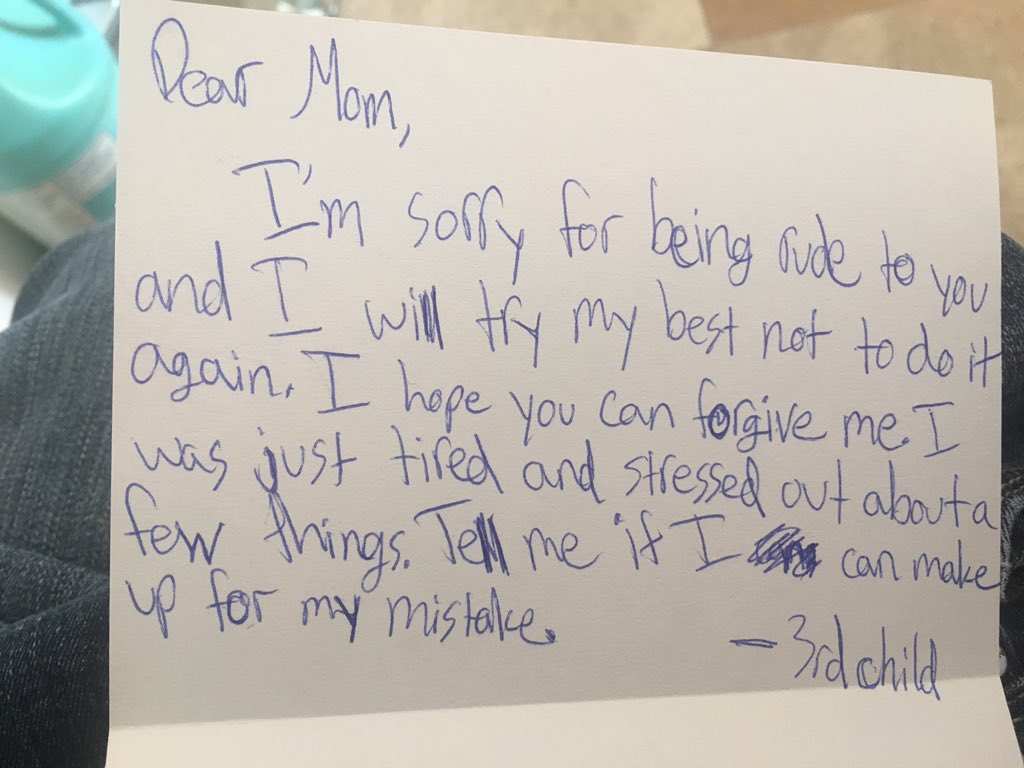 Dear Mom,
I'm sorry for being rude to you
and I will try my best not to do it
again. I hope you can forgive me. I
was just tired and stressed out about a
few things. Tell me if I can make
up for my mistake.
- 3rd child